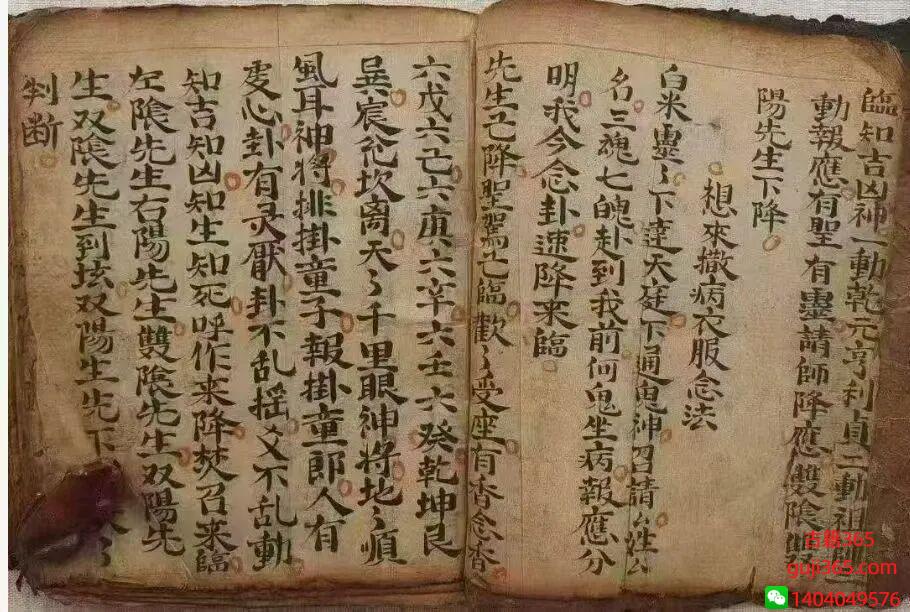 臨知吉凶神一動乾元亨利貞二動祖師
動報應有聖有靈請師降應雙陰
陽先生下降
想來撒病衣服念法
白米靈〻下達天庭下通鬼神召請厶姓厶
名三魂七魄赴到我前何鬼坐病報應分
明我今念卦速降来臨
先生已降聖駕已臨歡〻受座有香念香
六戊六己六庚六辛六壬六癸乾坤艮
巽宸兊坎离天〻千里眼神将地〻順
風耳神将排掛童子報掛童郎人有
虔心卦有灵厭卦不乱摇爻不乱動
知吉知凶知生知死呼作来降焚召来臨
左陰先生右陽先生雙陰先生双陽先
生双陰先生到坛双陽生先下
判断
古籍365
guji365.com
1404049576